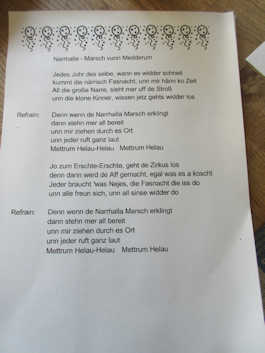 Narrhalla - Marsch vunn Medderum
Jedes Johr des selbe, wann es widder schneit
kummt die närrisch Fasnacht, unn mir hänn ko Zeit
All die große Narre, sieht mer uff de Stroß
unn die klone Kinner, wissen jetz gehts widder los
Refrain: Denn wenn de Narrhalla Marsch erklingt
dann stehn mer all bereit
unn mir ziehen durch es Ort
unn jeder ruft ganz laut
Mettrum Helau-Helau Mettrum Helau
Jo zum Erschte-Erschte, geht de Zirkus los
denn dann werd de Aff gemacht, egal was es a koscht
Jeder braucht 'was Nejes, die Fasnacht die iss do
unn alle freun sich, unn all sinse widder do
Refrain: Denn wenn de Narrhalla Marsch erklingt
dann stehn mer all bereit
unn mir ziehen durch es Ort
unn jeder ruft ganz laut
Mettrum Helau-Helau Mettrum Helau